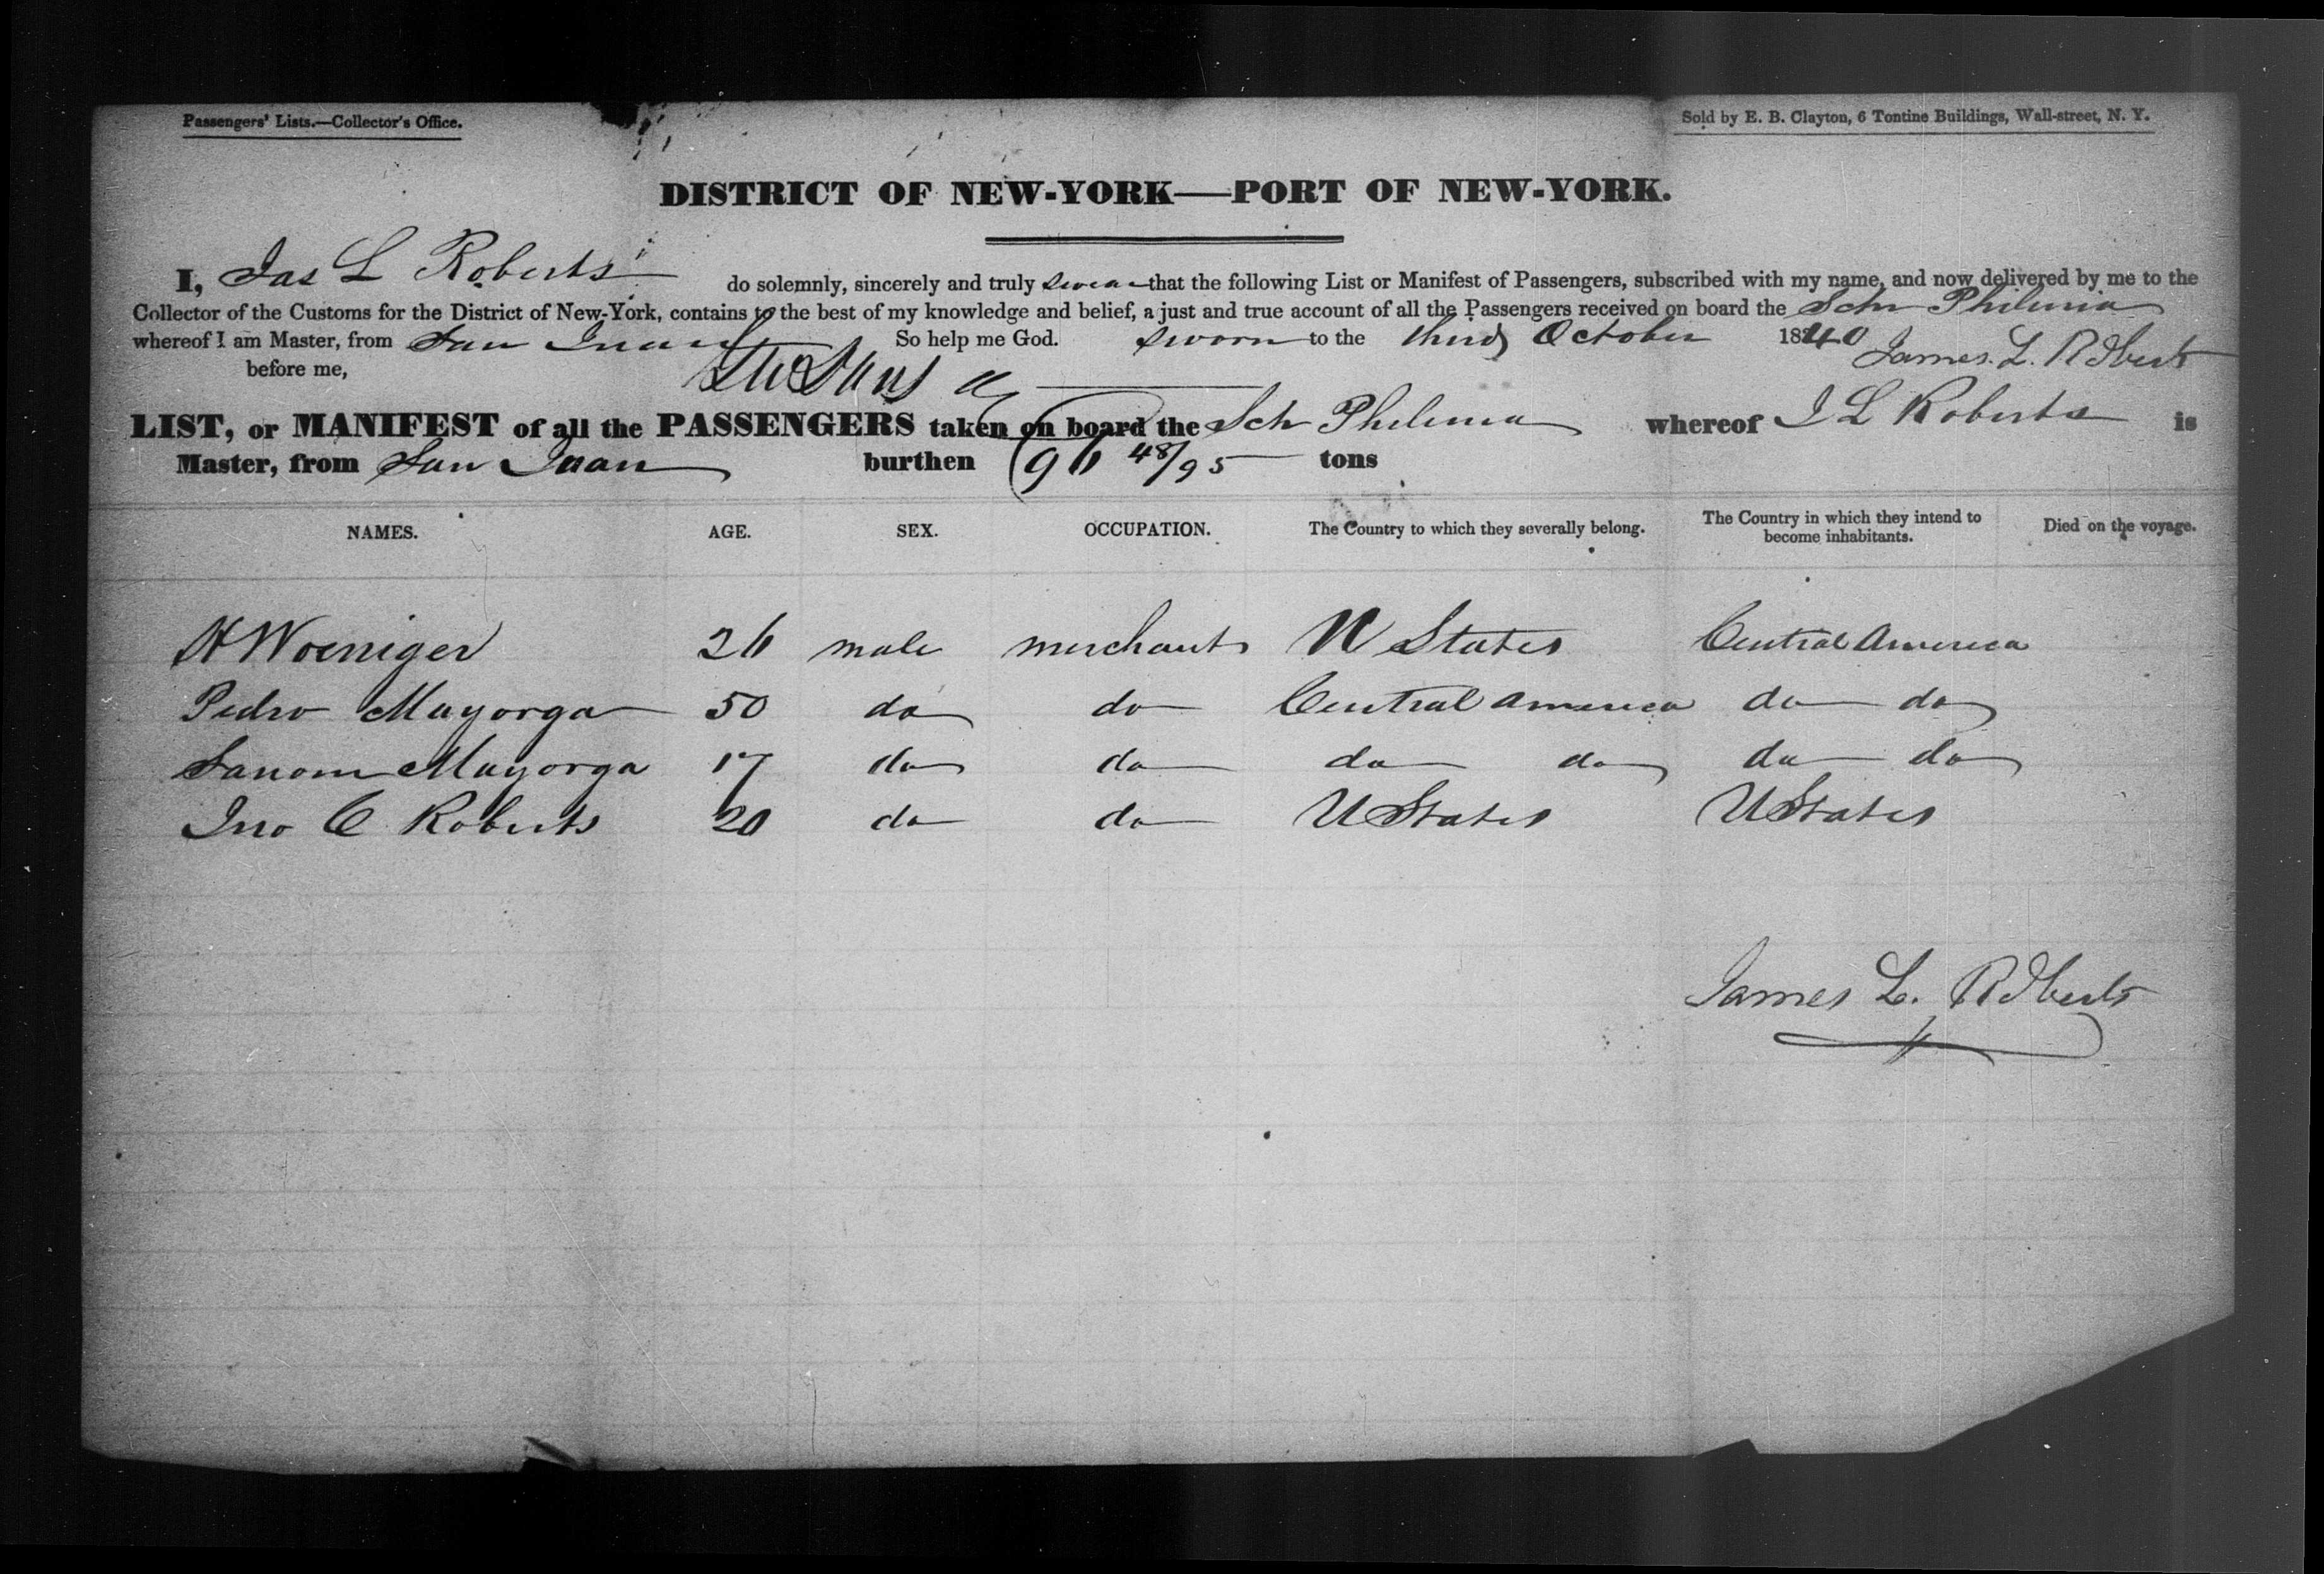 Passengers' Lists.—Collector's Office.
Sold by E. B. Clayton, 6 Tontine Buildings, Wall-street, N. Y.
DISTRICT OF NEW-YORK—PORT OF NEW-YORK.
I, Jas L Roberts do solemnly, sincerely and truly swear that the following List or Manifest of Passengers, subscribed with my name, and now delivered by me to the
Collector of the Customs for the District of New-York, contains to the best of my knowledge and belief, a just and true account of all the Passengers received on board the Schr Philena
whereof I am Master, from San Juan So help me God. Sworn to the third October 1840 James L. Roberts
before me,
LIST, or MANIFEST of all the PASSENGERS taken on board the Sch Philena whereof J L Roberts is
Master, from San Juan burthen 96 48/95 tons
NAMES. AGE. SEX. OCCUPATION. The Country to which they severally belong. The Country in which they intend to become inhabitants. Died on the voyage.
H Woeniger 26 male merchant U States Central America
Pedro Mayorga 50 do do Central America do do
Mayorga 17 do do do do do do
Jno C Roberts 20 do do U States U States
James L. Roberts